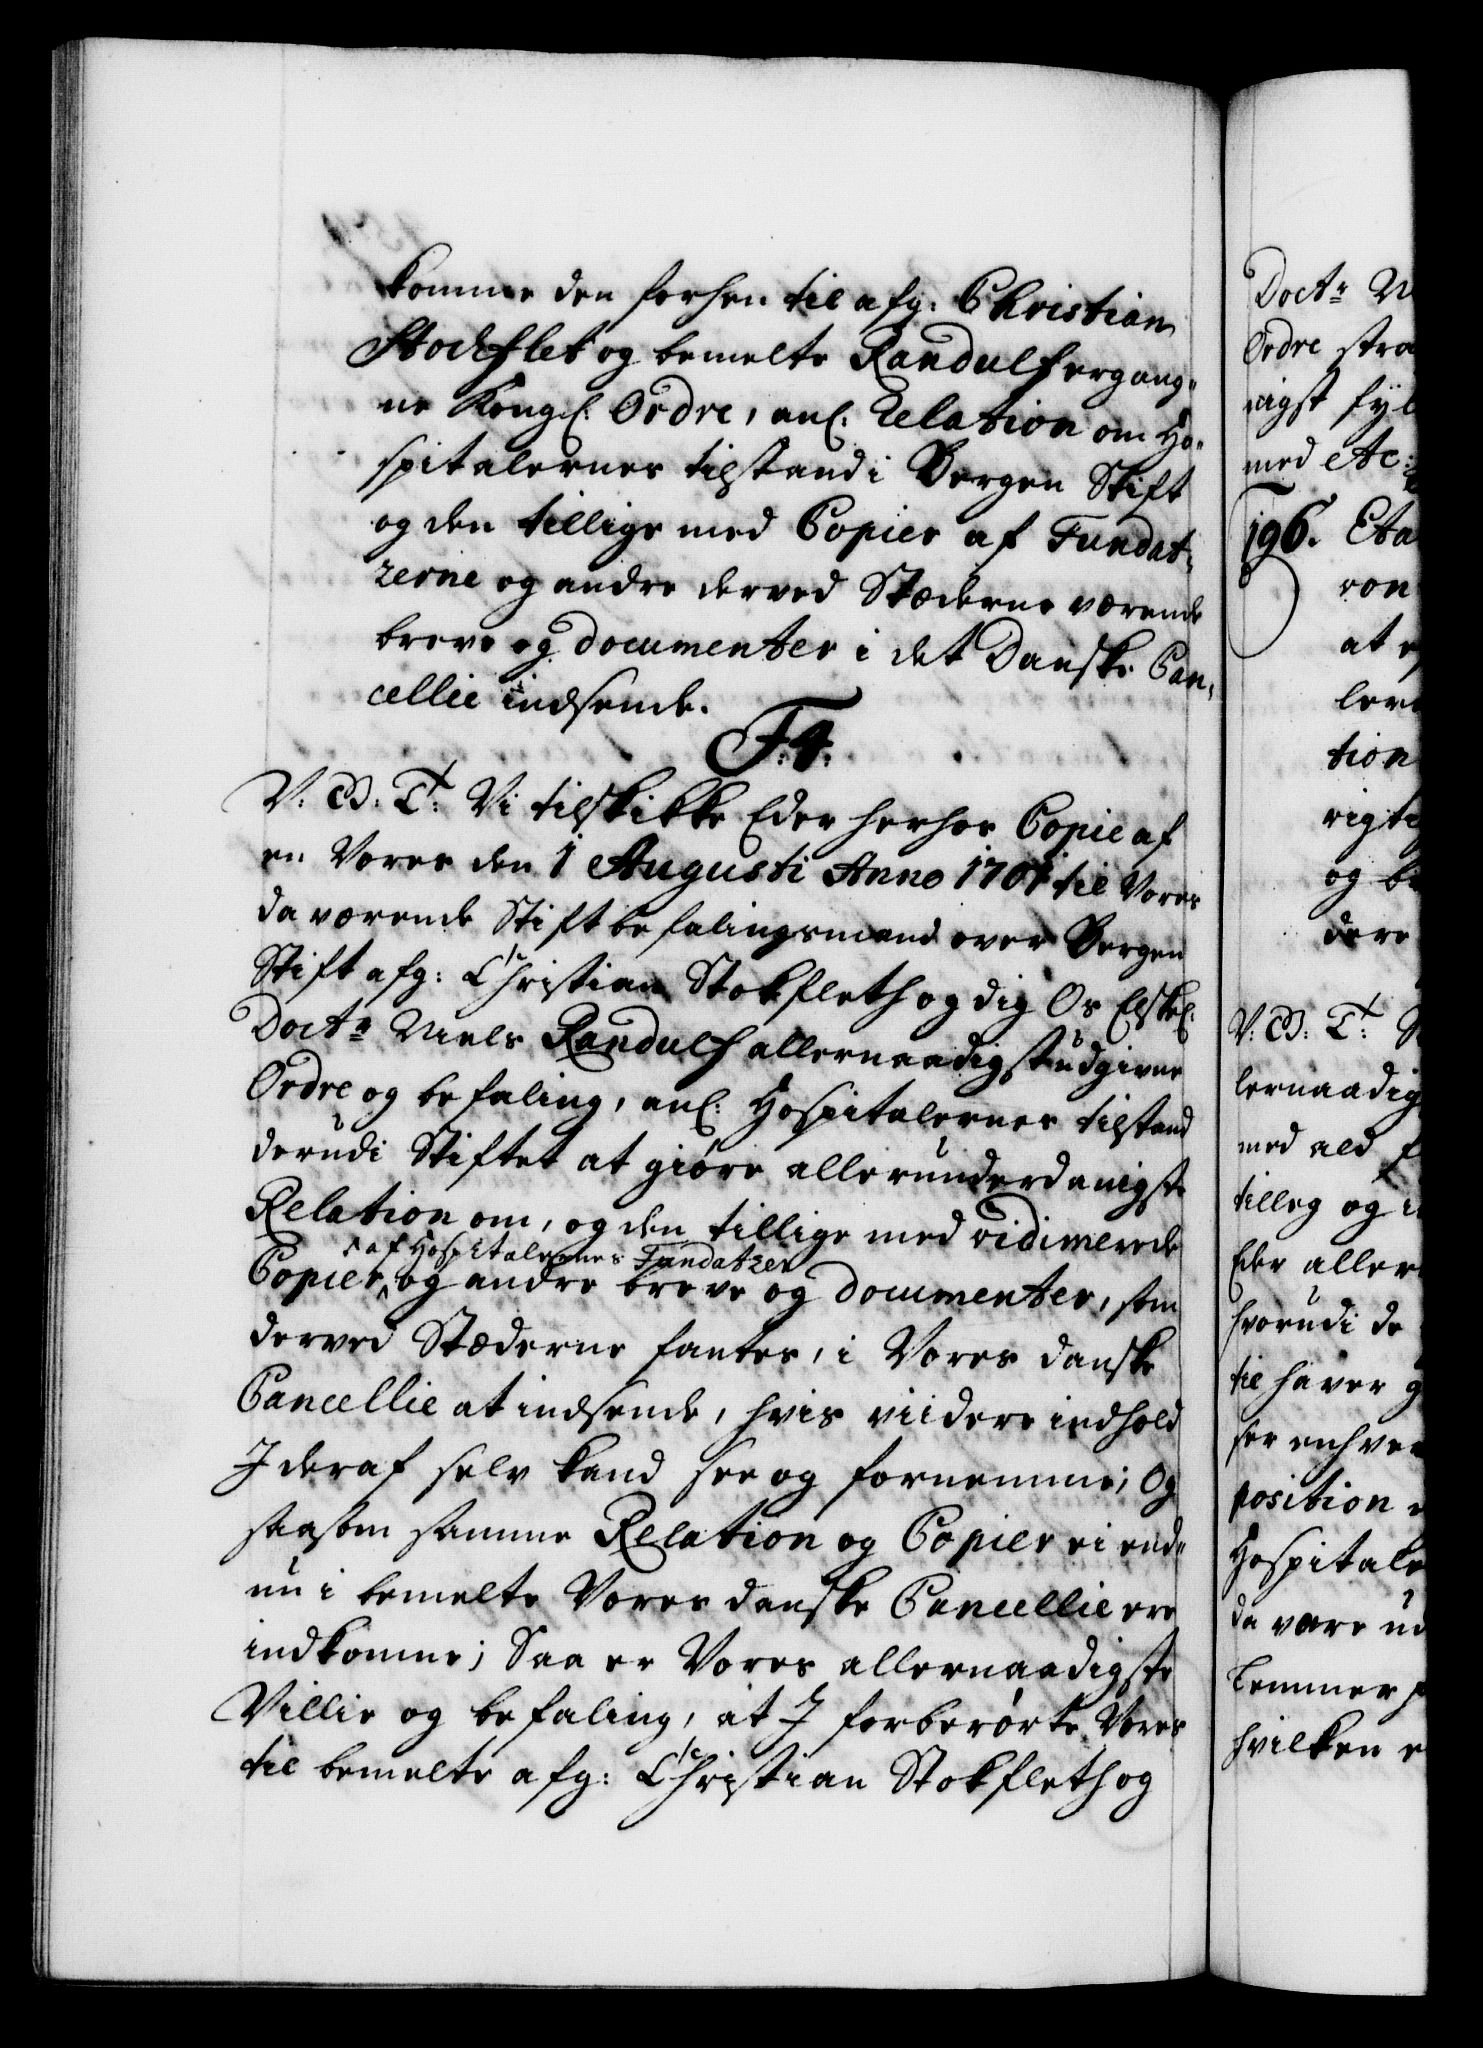 komme den forhen til afg: Christian
Stockflet og bemelte Randulf ergang-
ne Kongl: Ordre, anl: Relation om Ho-
spitalernes tilstand i Bergen Stift
og den tillige med Copier af Fundat-
zerne og andre derved Stæderne værende
breve og documenter i det Danske Can-
cellie indsende.
F: 4:
V: G: T: Vi tilskikke Eder herhos Copie af
en Vores den 1 Augusti Anno 1701 til Vores
da værende Stiftbefalingsmand over Bergen
Stift afg: Christian Stokfleth og dig Os Elskel:
Doct: Niels Randulf allernaadigst udgivne
Ordre og befaling, anl: Hospitalernes tilstand
derudi Stiftet at giøre allerunderdanigste
Relation om, og den tillige med vidimerede
Copier af Hospitalernes Fundatzer og andre breve og documenter, som
derved Stæderne fantes, i Vores danske
Cancellie at indsende, hvis viidere indhold
I deraf selv kand see og fornemme; Og
saasom samme Relation og Copier ei end-
nu i bemelte Vores danske Cancellie ere
indkomne; Saa er Vores allernaadigste
Villie og befaling, at I forberørte Vores
til bemelte afg: Christian Stokfleth og
Doct:
Ordre
nigst
med
196.
at
tion
og
dere
V: G: T:
lernaadig
med ald
tilleg og
Eder aller
hvorudi de
til haver
position
Hospitale
da være
Lemmer
hvilken